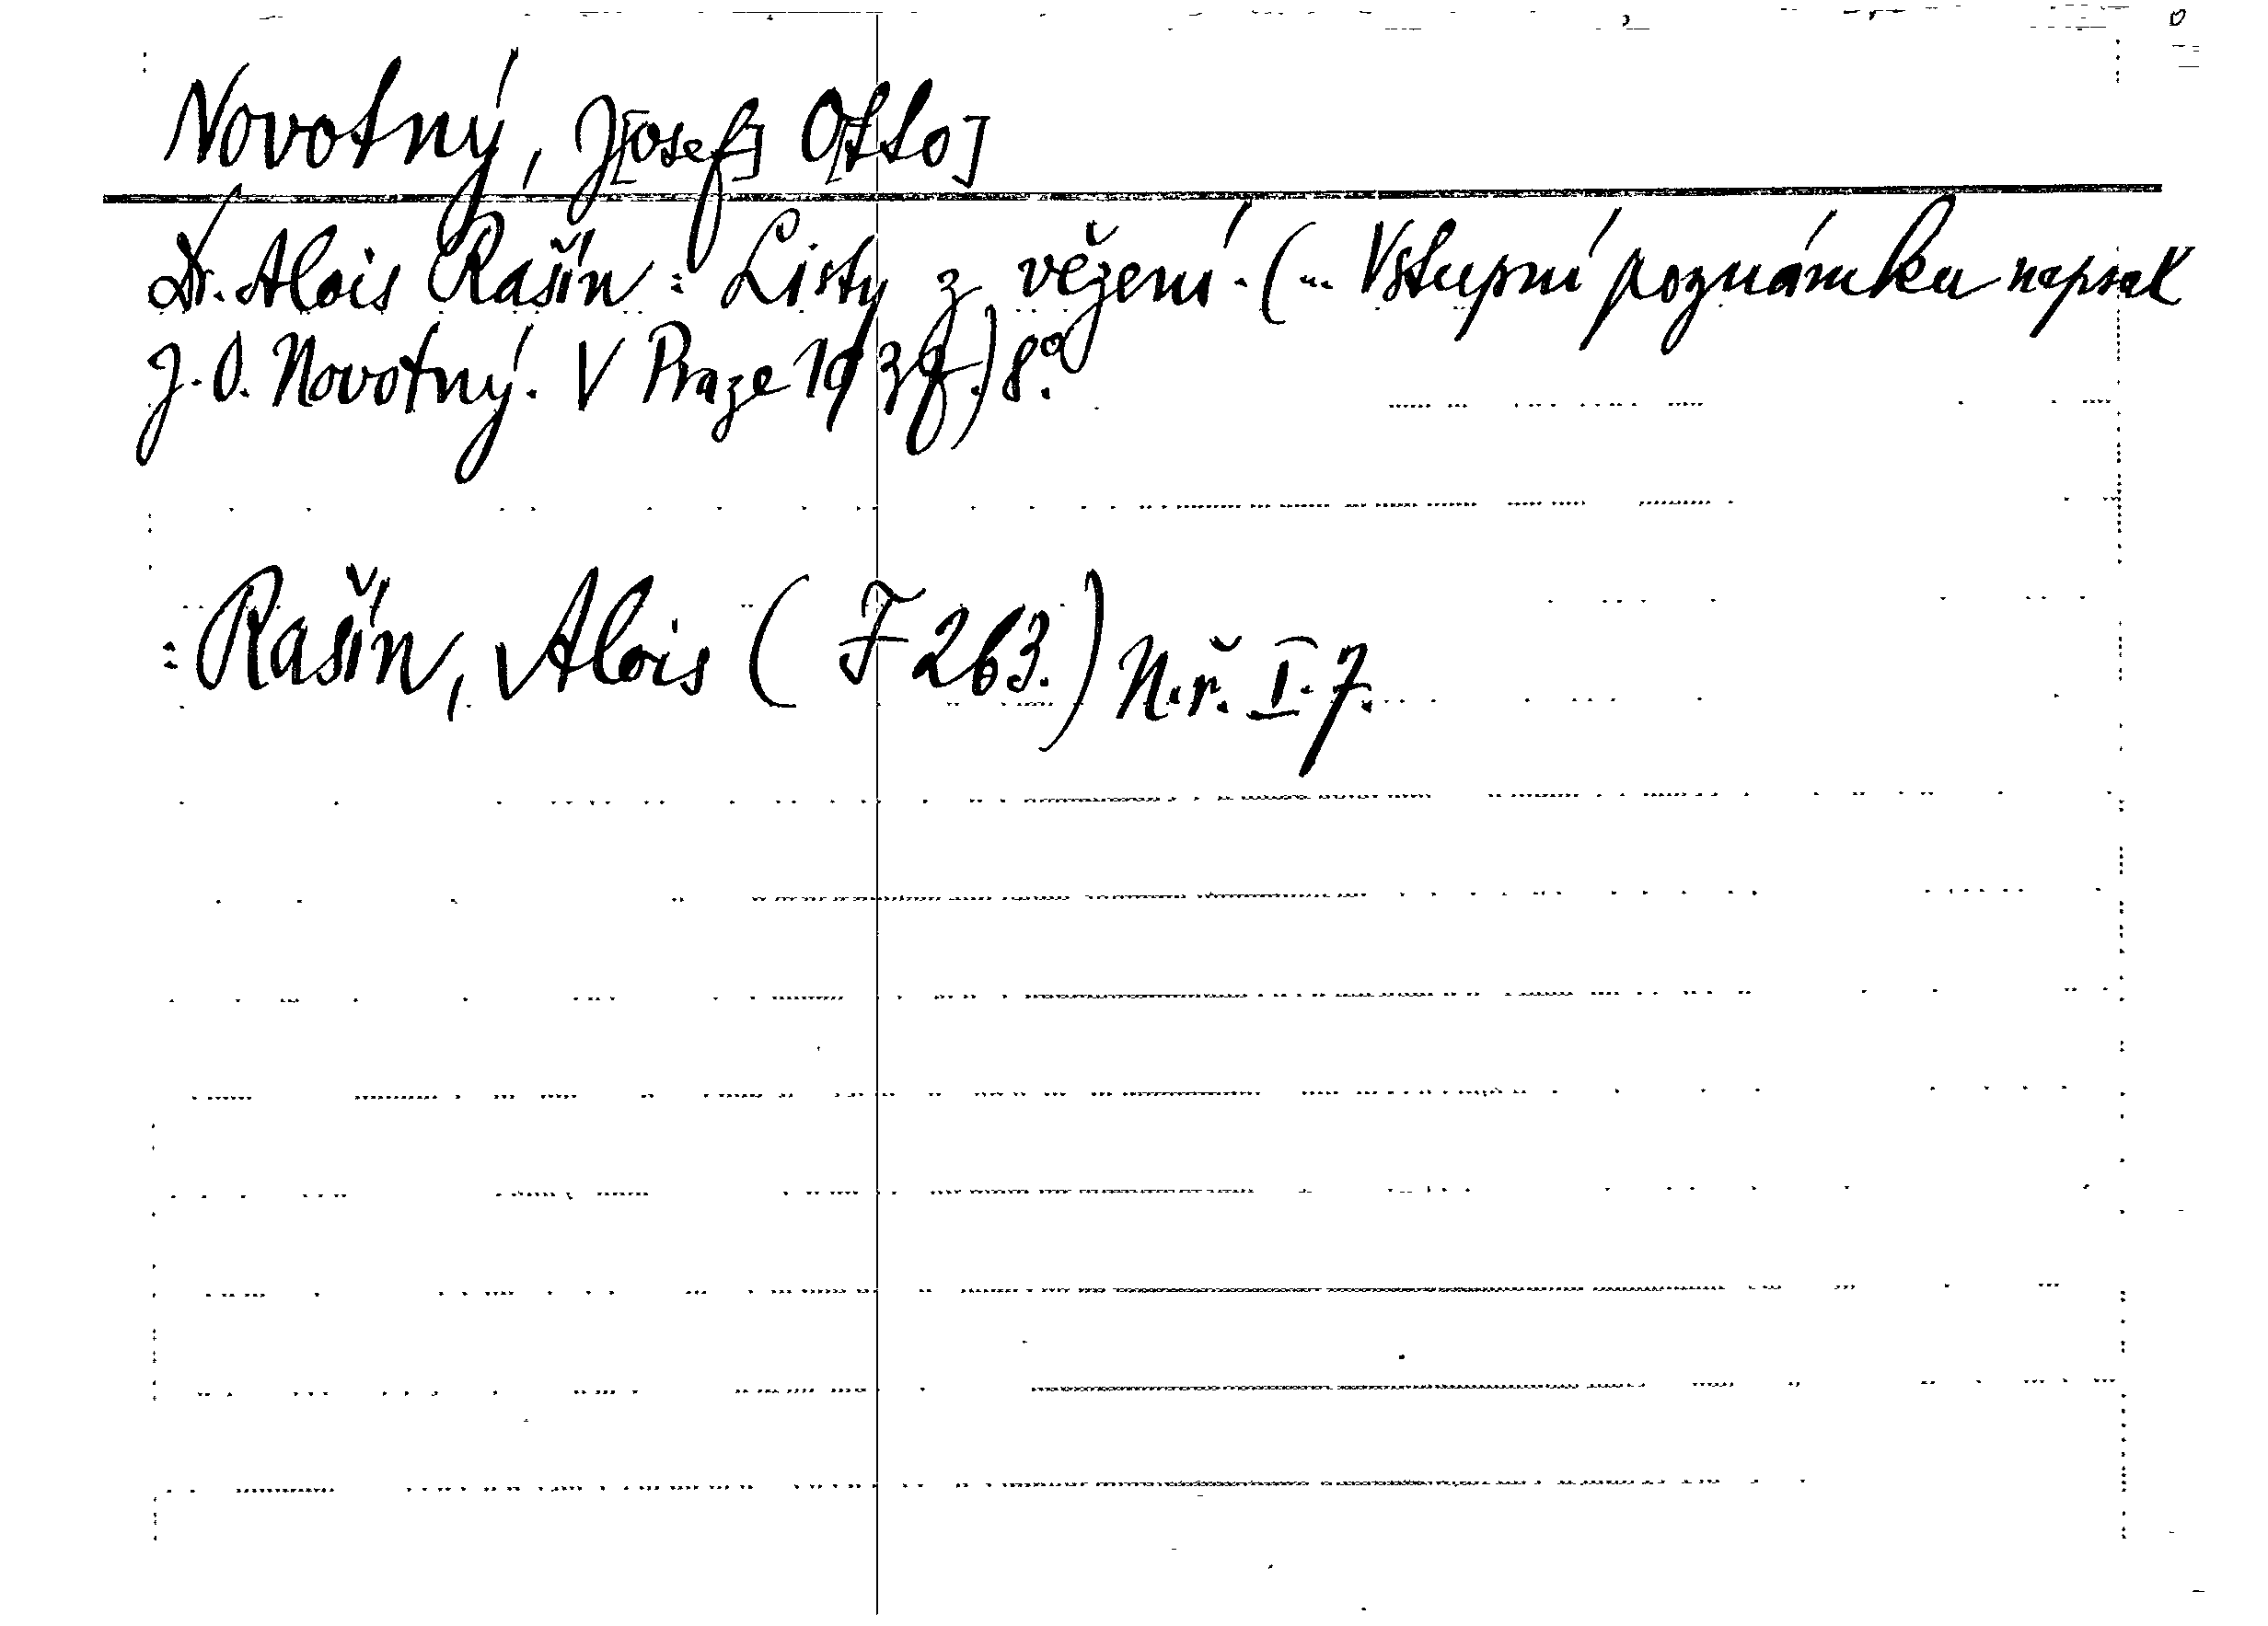 Novotný, J[osef] O[tto]
Dr. Alois Rašín: Listy z vězení. (... Vstupní poznámku napsal
J. O. Novotný. V Praze 1937.) 8°.
= Rašín, Alois (F 263.) N.ř. I. 7.